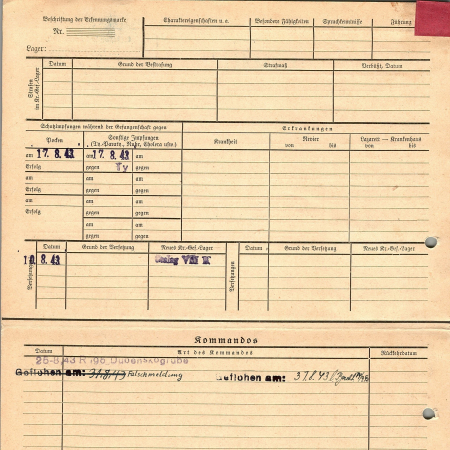 Beschriftung der Erkennungsmarke
Nr.
Lager:
Charaktereigenschaften u. a.
Besondere Fähigkeiten
Sprachkenntnisse
Führung
Strafen im Kr.-Gef.-Lager
Datum
Grund der Bestrafung
Strafmaß
Verbüßt, Datum
Schutzimpfungen während der Gefangenschaft gegen
Erkrankungen
Pocken
Sonstige Impfungen
(Ty.-Paraty., Ruhr, Cholera usw.)
Krankheit
Revier
von bis
Lazarett — Krankenhaus
von bis
am 17. 8. 43 am 17. 8. 43 am
Erfolg gegen Ty gegen
am am am
Erfolg gegen gegen
am am am
Erfolg gegen gegen
am am
gegen gegen
Versetzungen
Datum
Grund der Versetzung
Neues Kr.-Gef.-Lager
Versetzungen
Datum
Grund der Versetzung
Neues Kr.-Gef.-Lager
Stalag VIII
Kommandos
Datum
Art des Kommandos
Rückkehrdatum
Geflohen am: 31.8.43 Falschmeldung
Geflohen am: